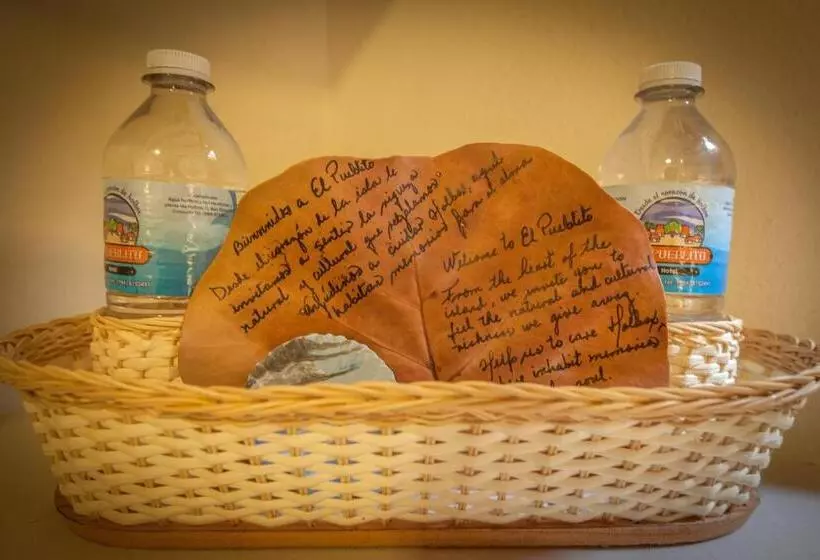 Bienvenidos a El Pueblito
Desde el corazón de la isla le
invitamos a sentir la riqueza
natural y cultural que regalamos.
Ayúdenos a cuidar Holbox, aquí
habitan memorias con el alma
Welcome to El Pueblito
From the heart of the
island, we invite you to
feel the natural and cultural
richness we give away.
Help us to care Holbox,
inhabit memories
soul.
PUEBLITO
Hotel
Desde el corazón de holbox
PUEBLITO
Hotel